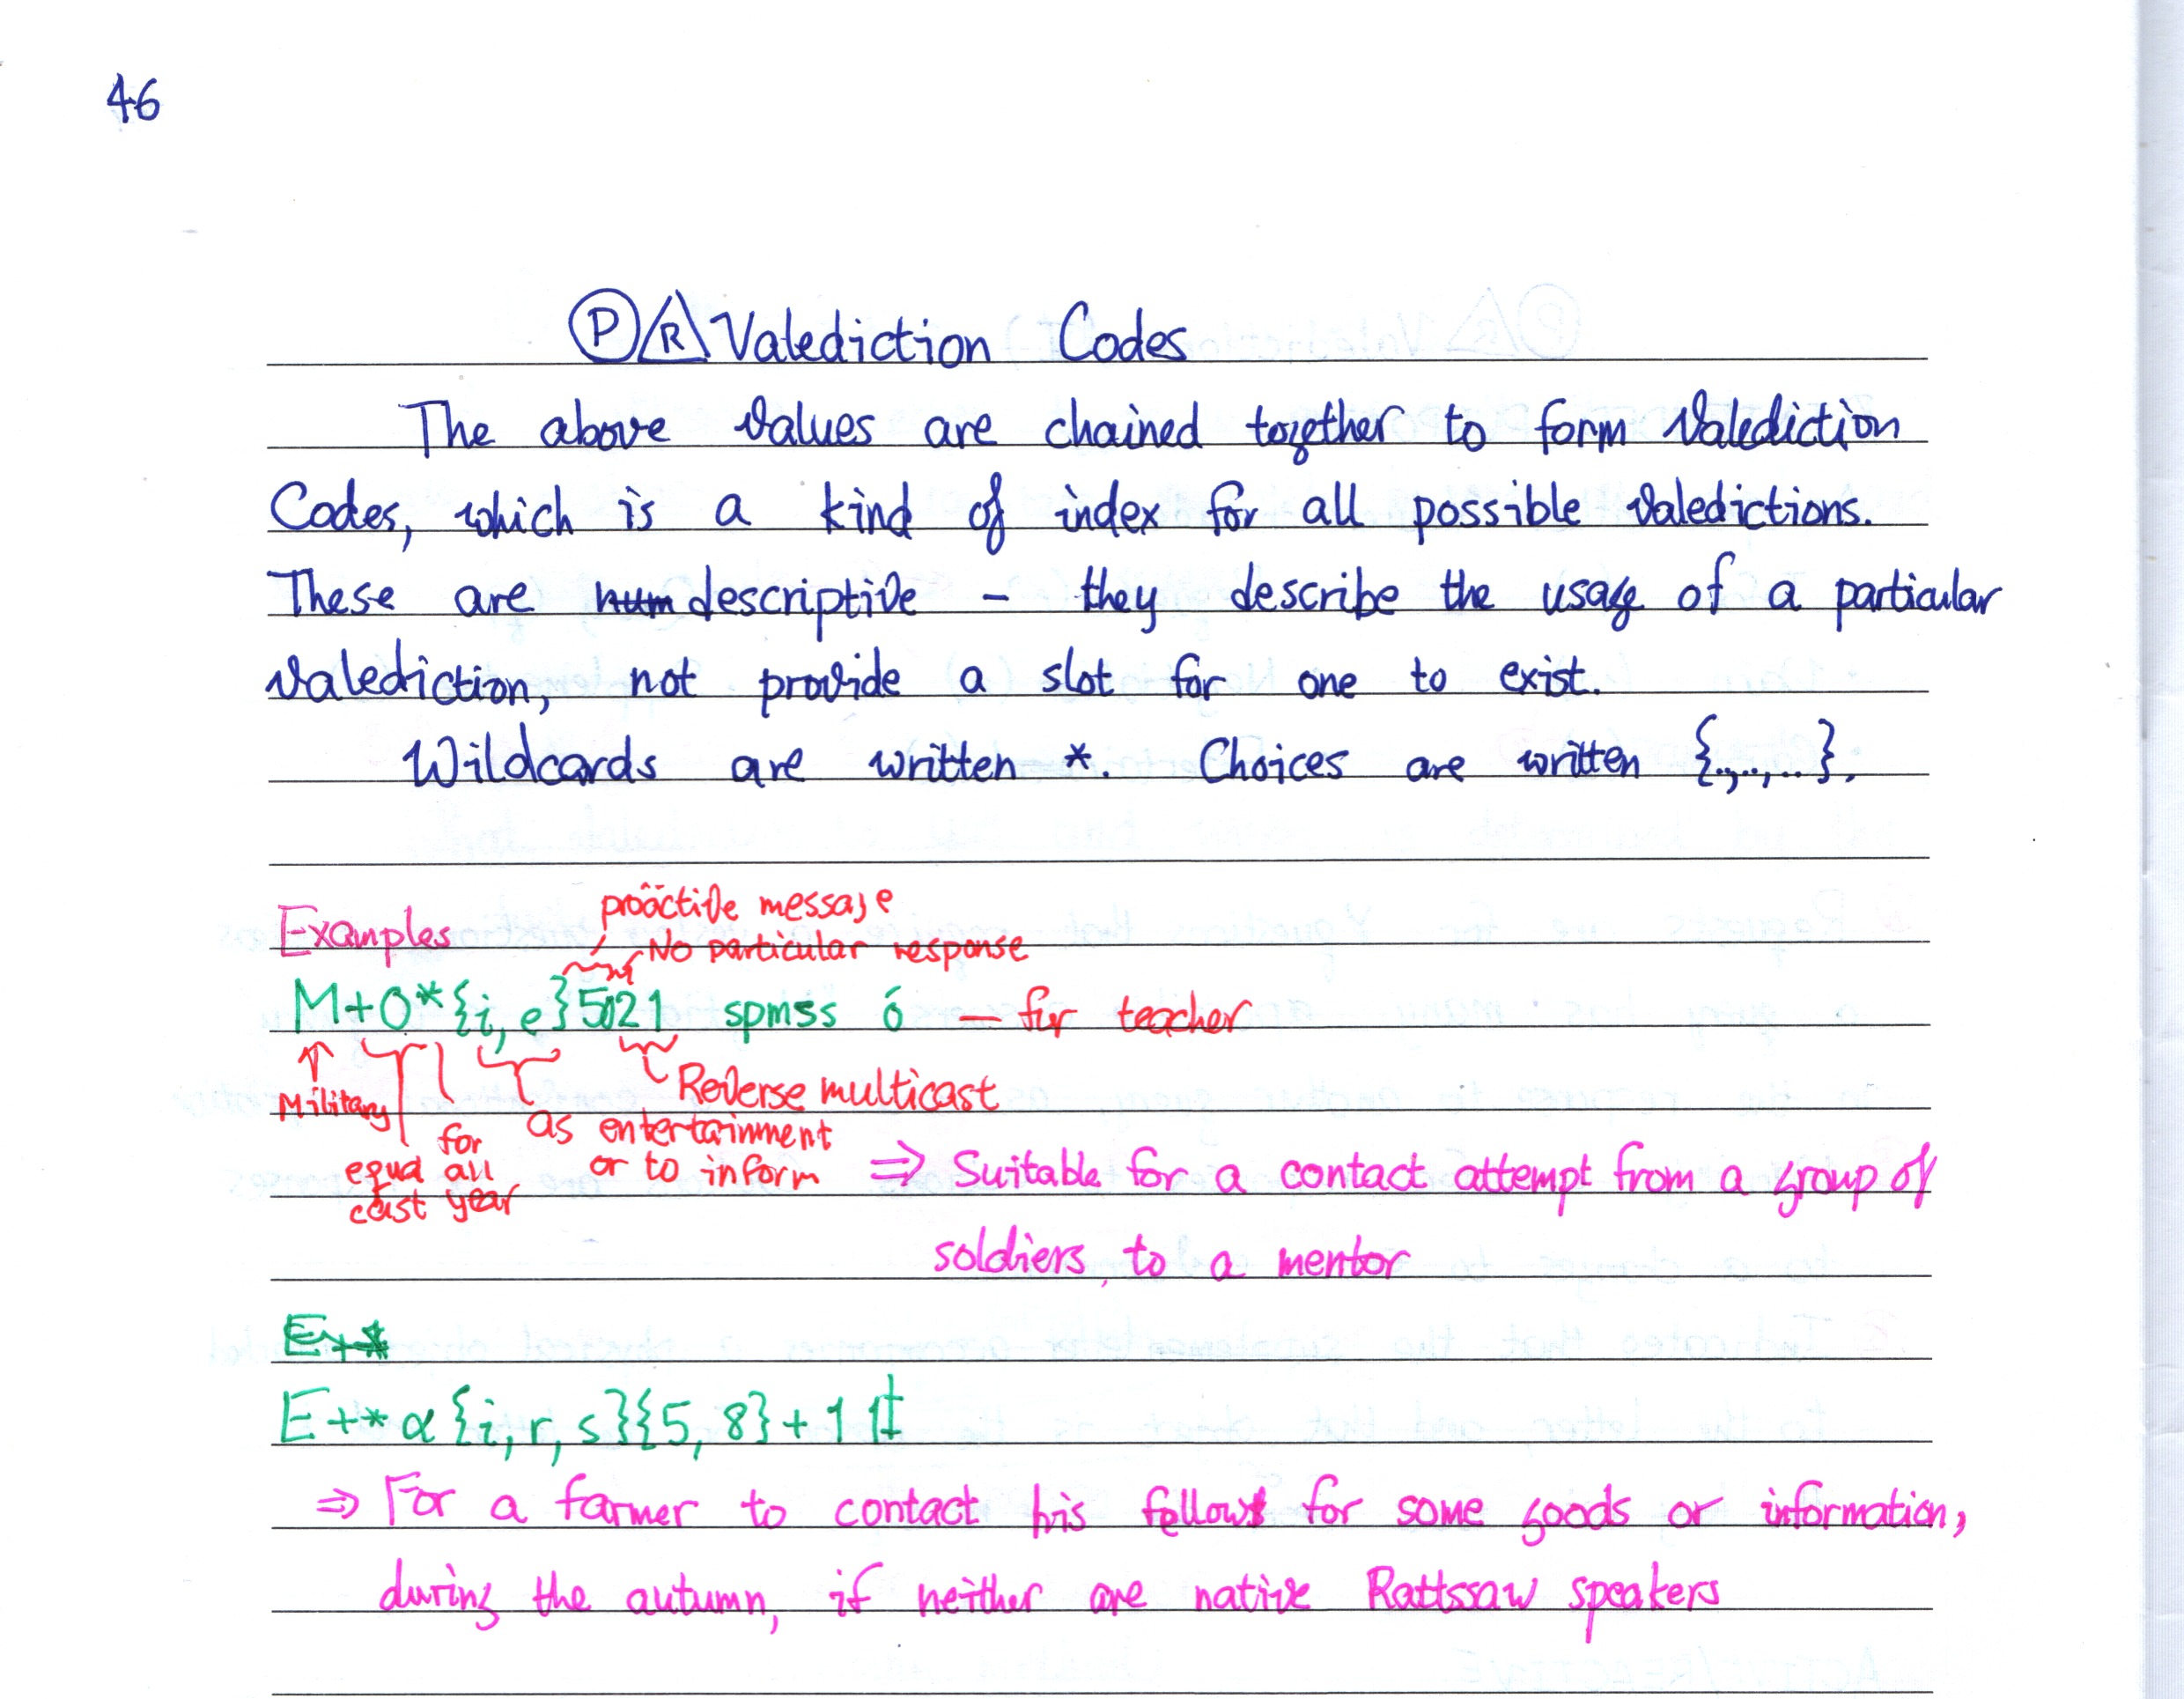 46
Ⓟ R Valediction Codes
The above values are chained together to form Valediction
Codes, which is a kind of index for all possible valedictions.
These are num descriptive - they describe the usage of a particular
valediction, not provide a slot for one to exist.
Wildcards are written *. Choices are written {..,..,..}.
proäctive message
Examples
No particular response
M+0*{i,e}5021 spmss ó — for teacher
Military
Reverse multicast
equal cast
for all year
as entertainment or to inform
⇒ Suitable for a contact attempt from a group of
soldiers to a mentor
E+*
E+*α{i,r,s}{5,8}+11
⇒ For a farmer to contact his fellows for some goods or information,
during the autumn, if neither are native Rattssaw speakers